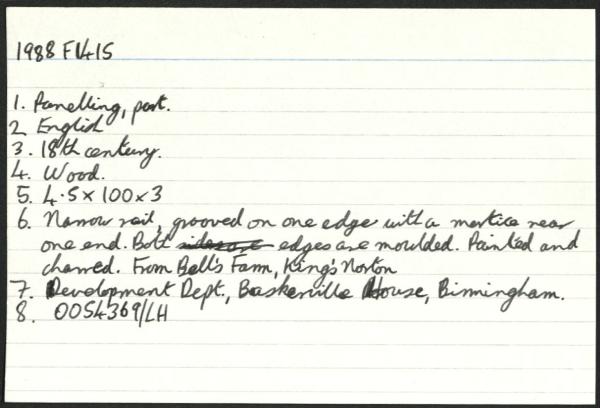 1988 F1415
1. Panelling, part.
2 English
3. 18th century.
4. Wood.
5. 4.5 x 100 x 3
6. Narrow rail, grooved on one edge with a mortice near
one end. Both edges are moulded. Painted and
charred. From Bell's Farm, King's Norton
7. Development Dept., Baskerville House, Birmingham.
8. OOS4369/LH